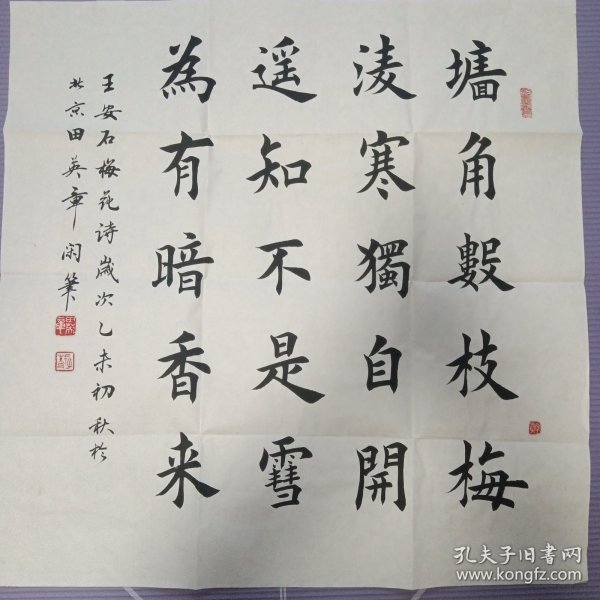 墻角數枝梅
凌寒獨自開
遥知不是雪
為有暗香来
王安石梅花诗歲次乙未初秋於
北京田英章闲筆
孔夫子旧书网
www.kongfz.com